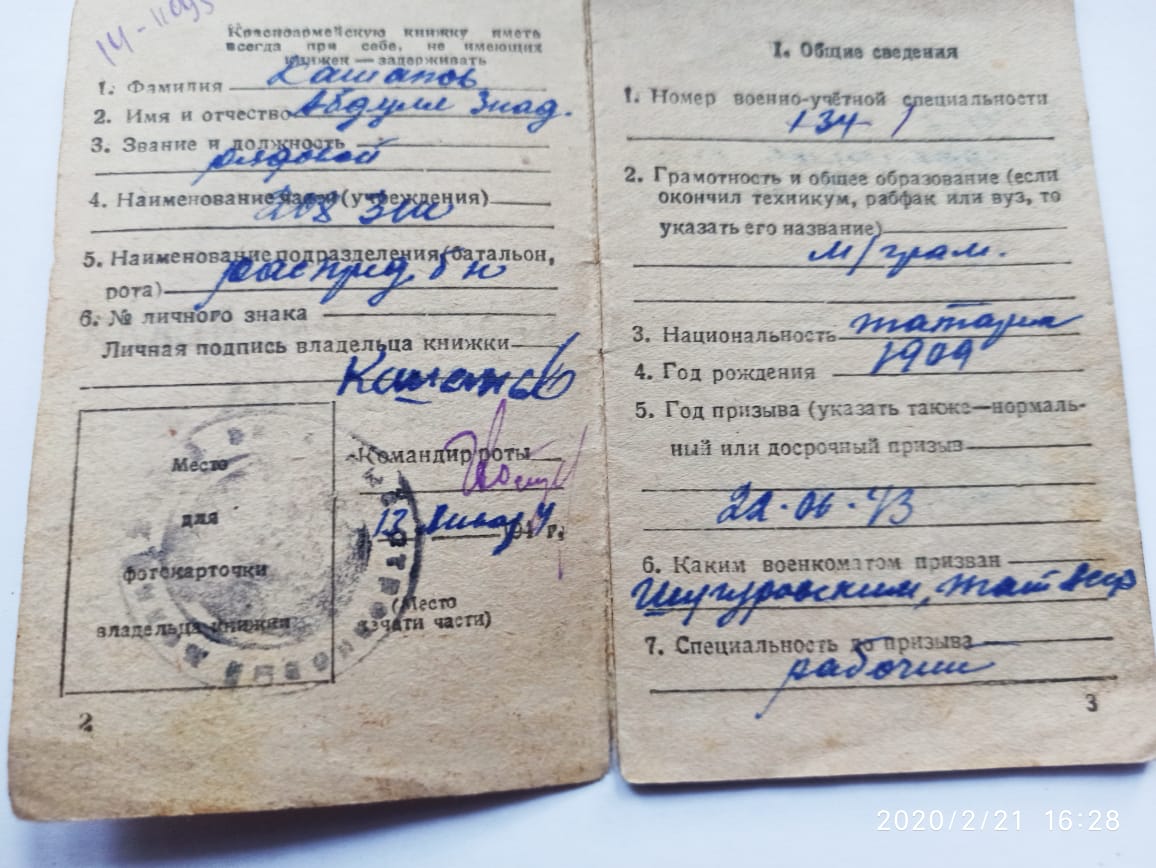 Красноармейскую книжку иметь
всегда при себе, не имеющих
книжек — задерживать
1. Фамилия Кашапов
2. Имя и отчество Абдулл Зиад.
3. Звание и должность
рядовой
4. Наименование части (учреждения)
20х ЗШ
5. Наименование подразделения (батальон,
рота) распред. б-н
6. № личного знака
Личная подпись владельца книжки
Кашапов
Место
для
фотокарточки
владельца книжки
Командир роты
13 январ 1944 г.
(Место
печати части)
2
I. Общие сведения
1. Номер военно-учётной специальности
134
2. Грамотность и общее образование (если
окончил техникум, рабфак или вуз, то
указать его название)
м/грам.
3. Национальность татарин
4. Год рождения 1909
5. Год призыва (указать также—нормаль-
ный или досрочный призыв
22.06.43
6. Каким военкоматом призван
Шугуровским, Тат АССР
7. Специальность до призыва
рабочий
3
2020/2/21 16:28